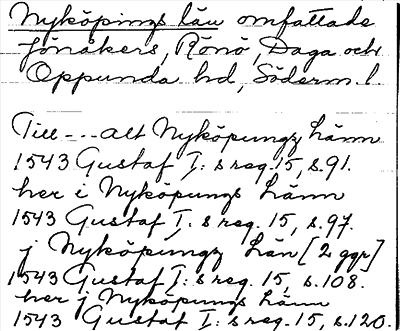 Nyköpings län omfattade
Jönåkers, Rönö, Daga och
Oppunda hd, Söderm. l.
Till --- alt Nyköpungz Länn
1543 Gustaf I:s reg. 15, s. 91.
her i Nyköpungs Länn
1543 Gustaf I:s reg. 15, s. 97.
j Nyköpungz Län [2 ggr]
1543 Gustaf I:s reg. 15, s. 108.
her j Nyköpungs Länn
1543 Gustaf I:s reg. 15, s. 120.